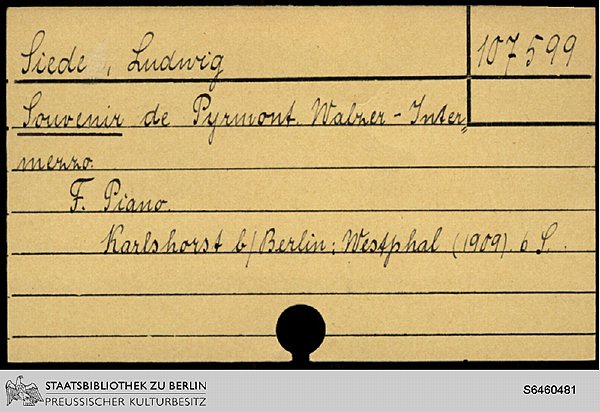 Siede, Ludwig
107599
Souvenir de Pyrmont. Walzer-Inter=
mezzo.
F. Piano.
Karlshorst b/Berlin: Westphal (1909). 6 S.
STAATSBIBLIOTHEK ZU BERLIN
PREUSSISCHER KULTURBESITZ
S6460481